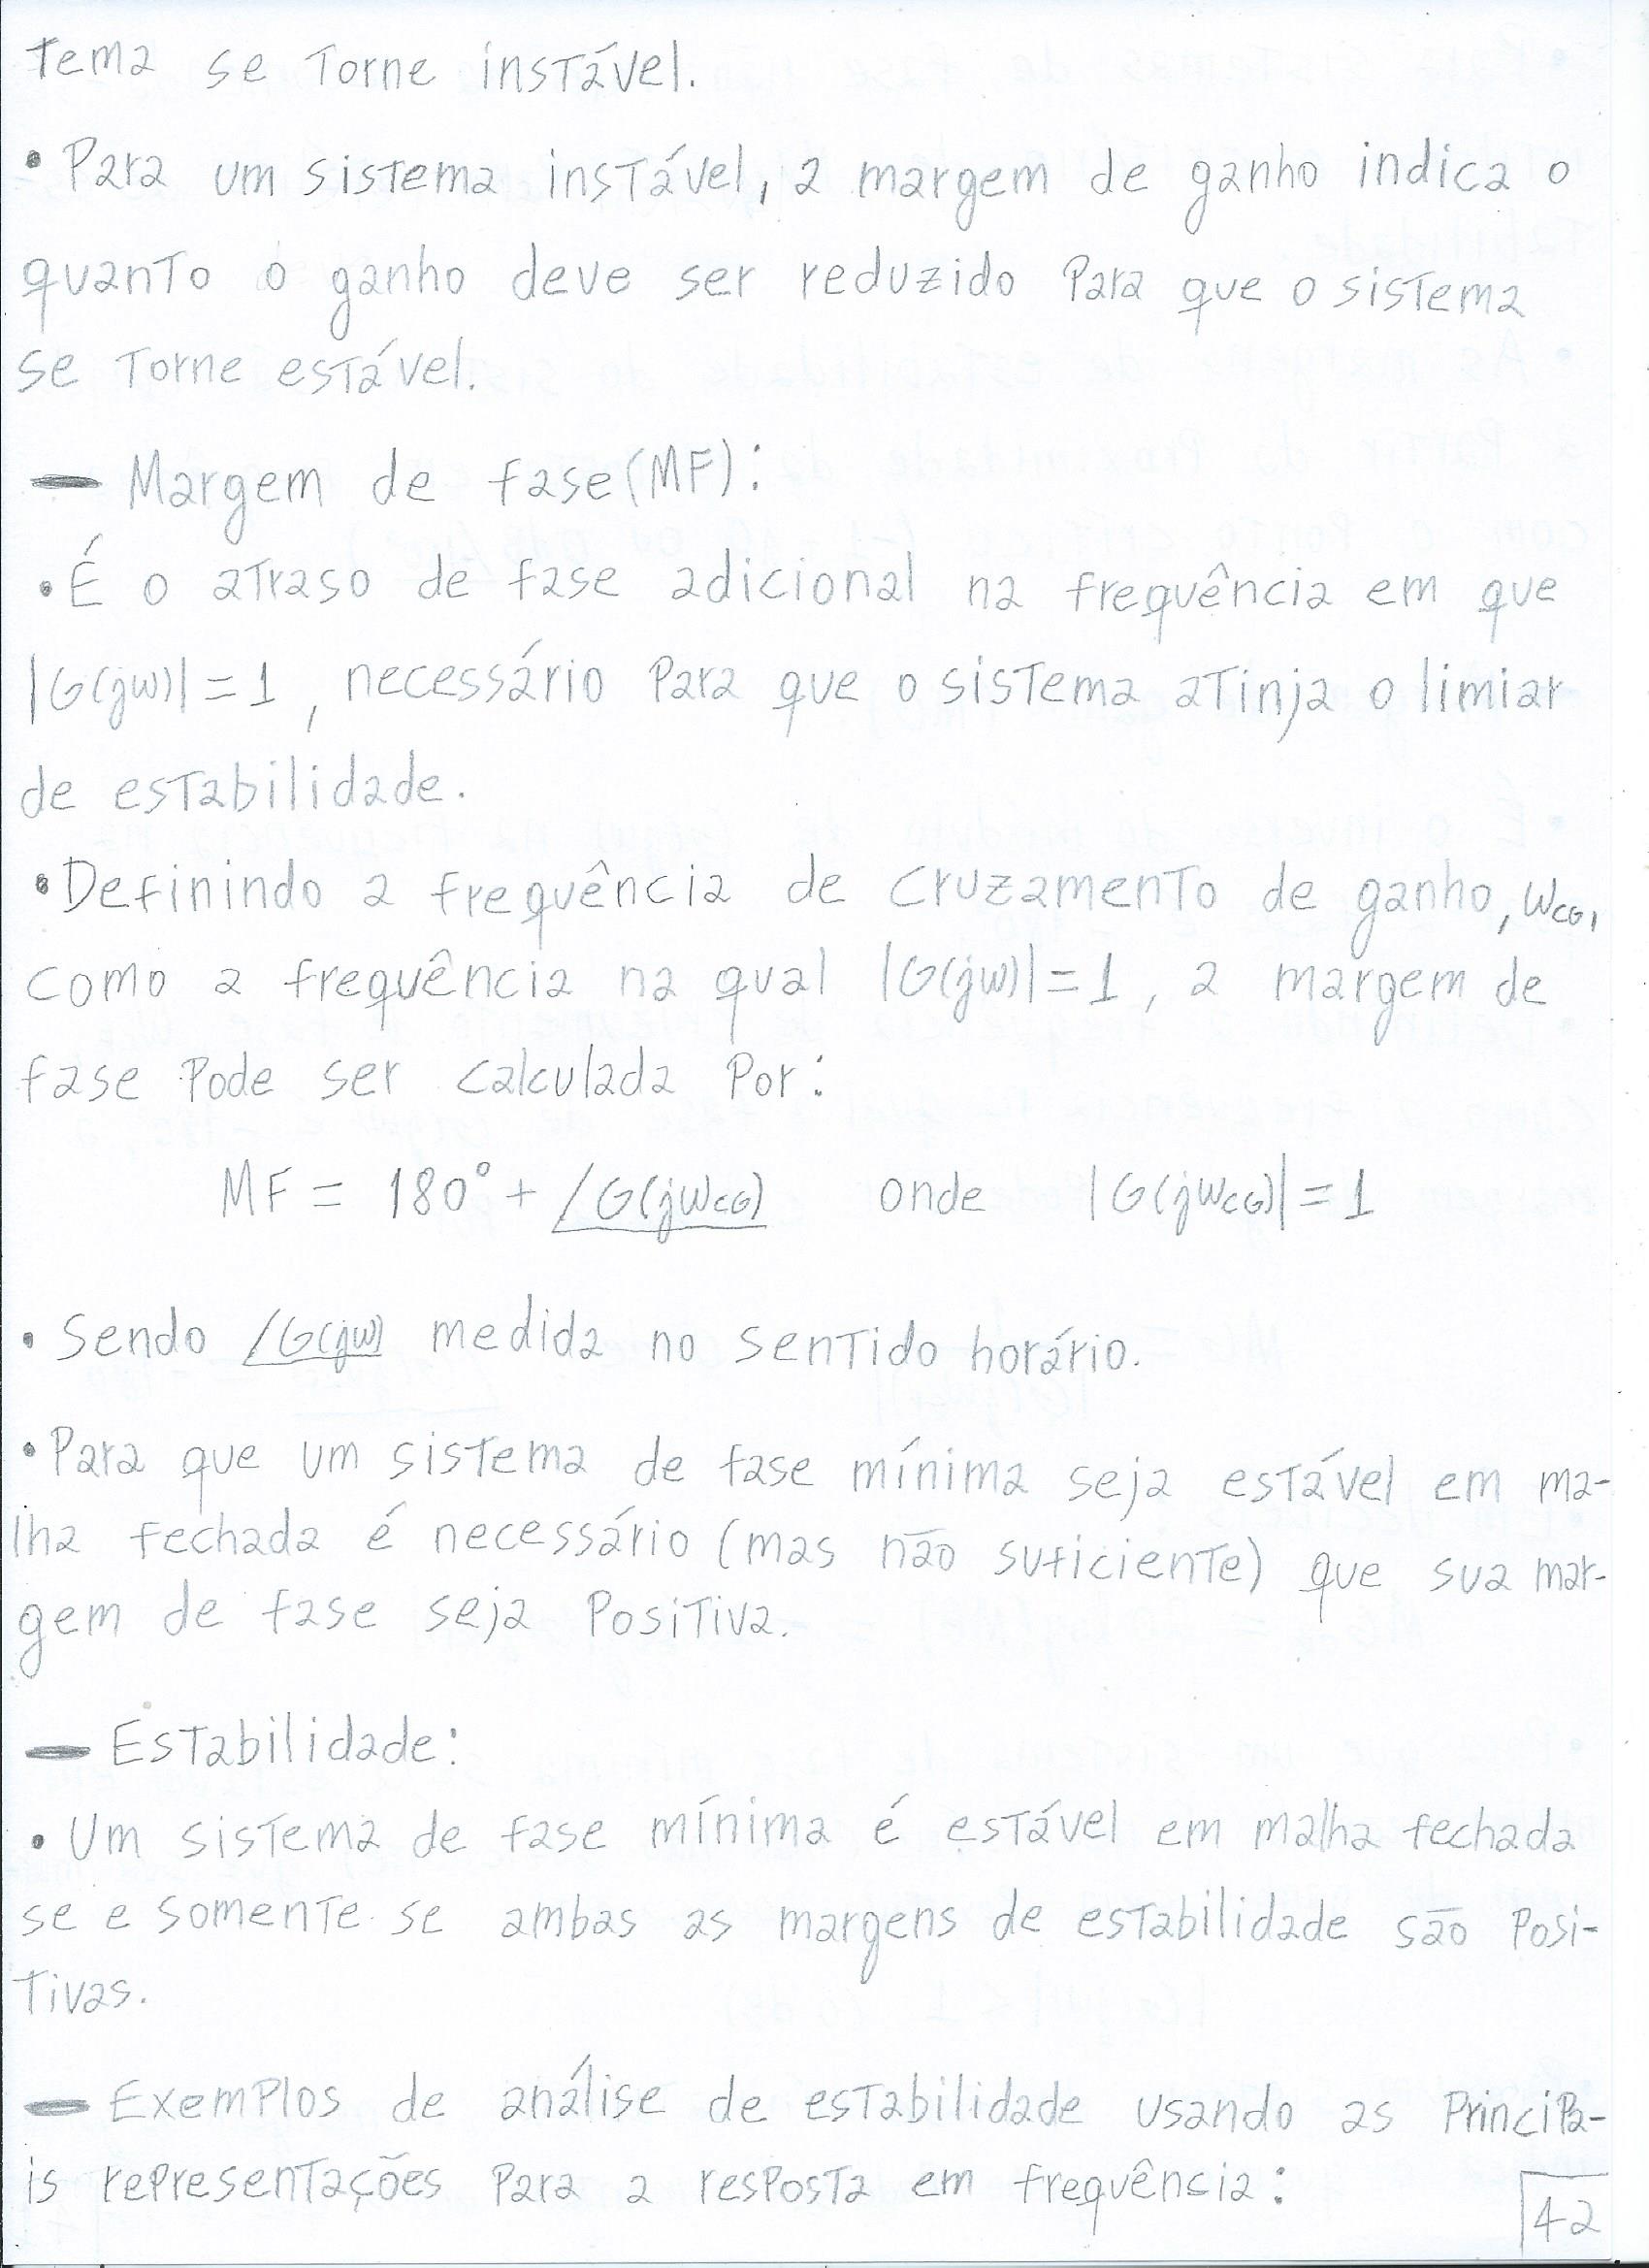 tema se torne instável.
• Para um sistema instável, a margem de ganho indica o
quanto o ganho deve ser reduzido para que o sistema
se torne estável.
— Margem de fase (MF):
• É o atraso de fase adicional na frequência em que
|G(jω)| = 1, necessário para que o sistema atinja o limiar
de estabilidade.
• Definindo a frequência de cruzamento de ganho, ωCG,
como a frequência na qual |G(jω)| = 1, a margem de
fase pode ser calculada por:
MF = 180° + ∠G(jωCG) onde |G(jωCG)| = 1
• Sendo ∠G(jω) medida no sentido horário.
• Para que um sistema de fase mínima seja estável em ma-
lha fechada é necessário (mas não suficiente) que sua mar-
gem de fase seja positiva.
— Estabilidade:
• Um sistema de fase mínima é estável em malha fechada
se e somente se ambas as margens de estabilidade são posi-
tivas.
— Exemplos de análise de estabilidade usando as principa-
is representações para a resposta em frequência:
42